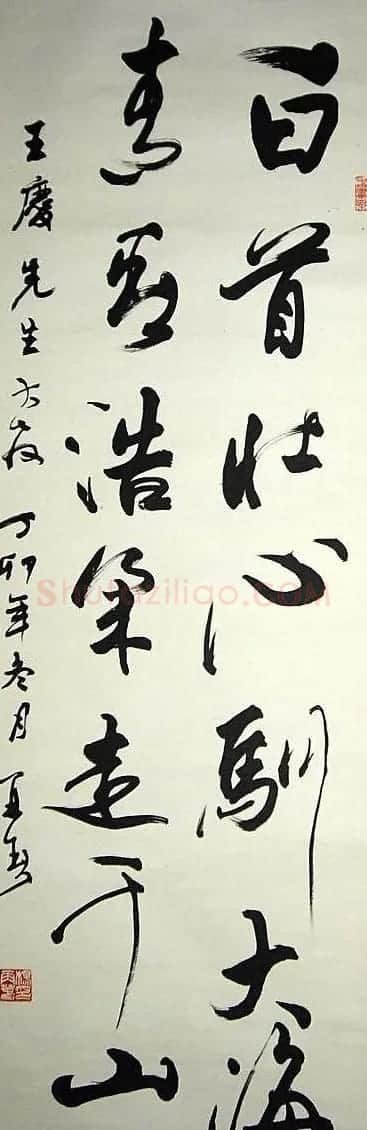 白首壮心驯大海
青春浩气走千山
王慶先生方家 丁卯年冬月
Shufaziliao.COM